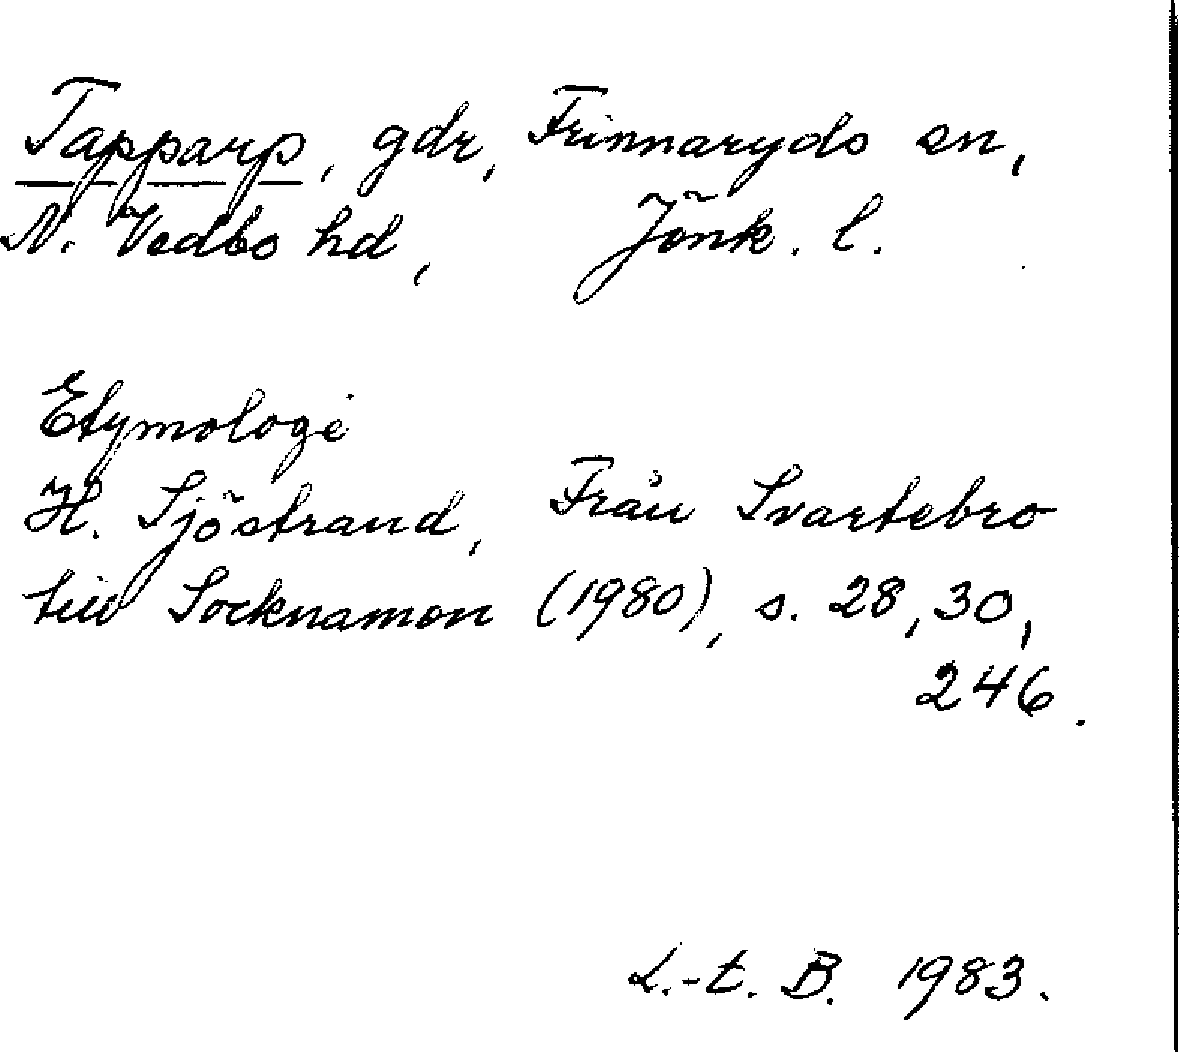 Tapparp, gdr, Frinnaryds sn,
N. Vedbo hd, Jönk. l.
Etymologi
H. Sjöstrand, Från Svartebro
till Socknamon (1980), s. 28, 30,
246.
L.-t. B. 1983.